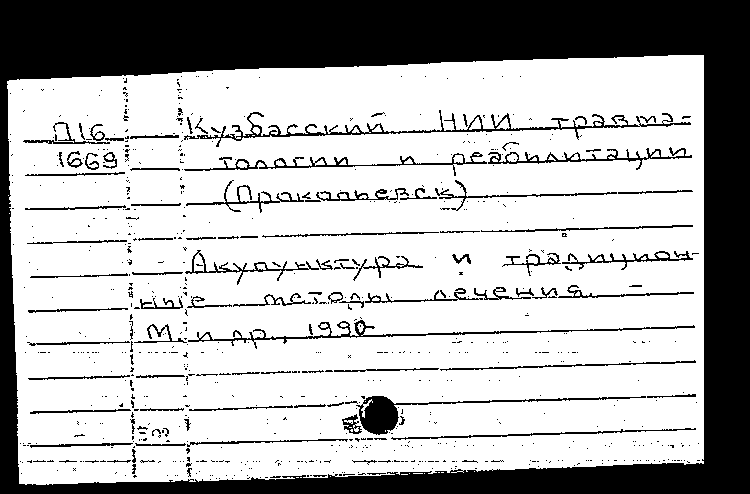 П16 Кузбасский НИИ травма=
1669 тологии и реабилитации
(Прокопьевск)
Акупунктура и традицион-
ные методы лечения. -
М. и др., 1990